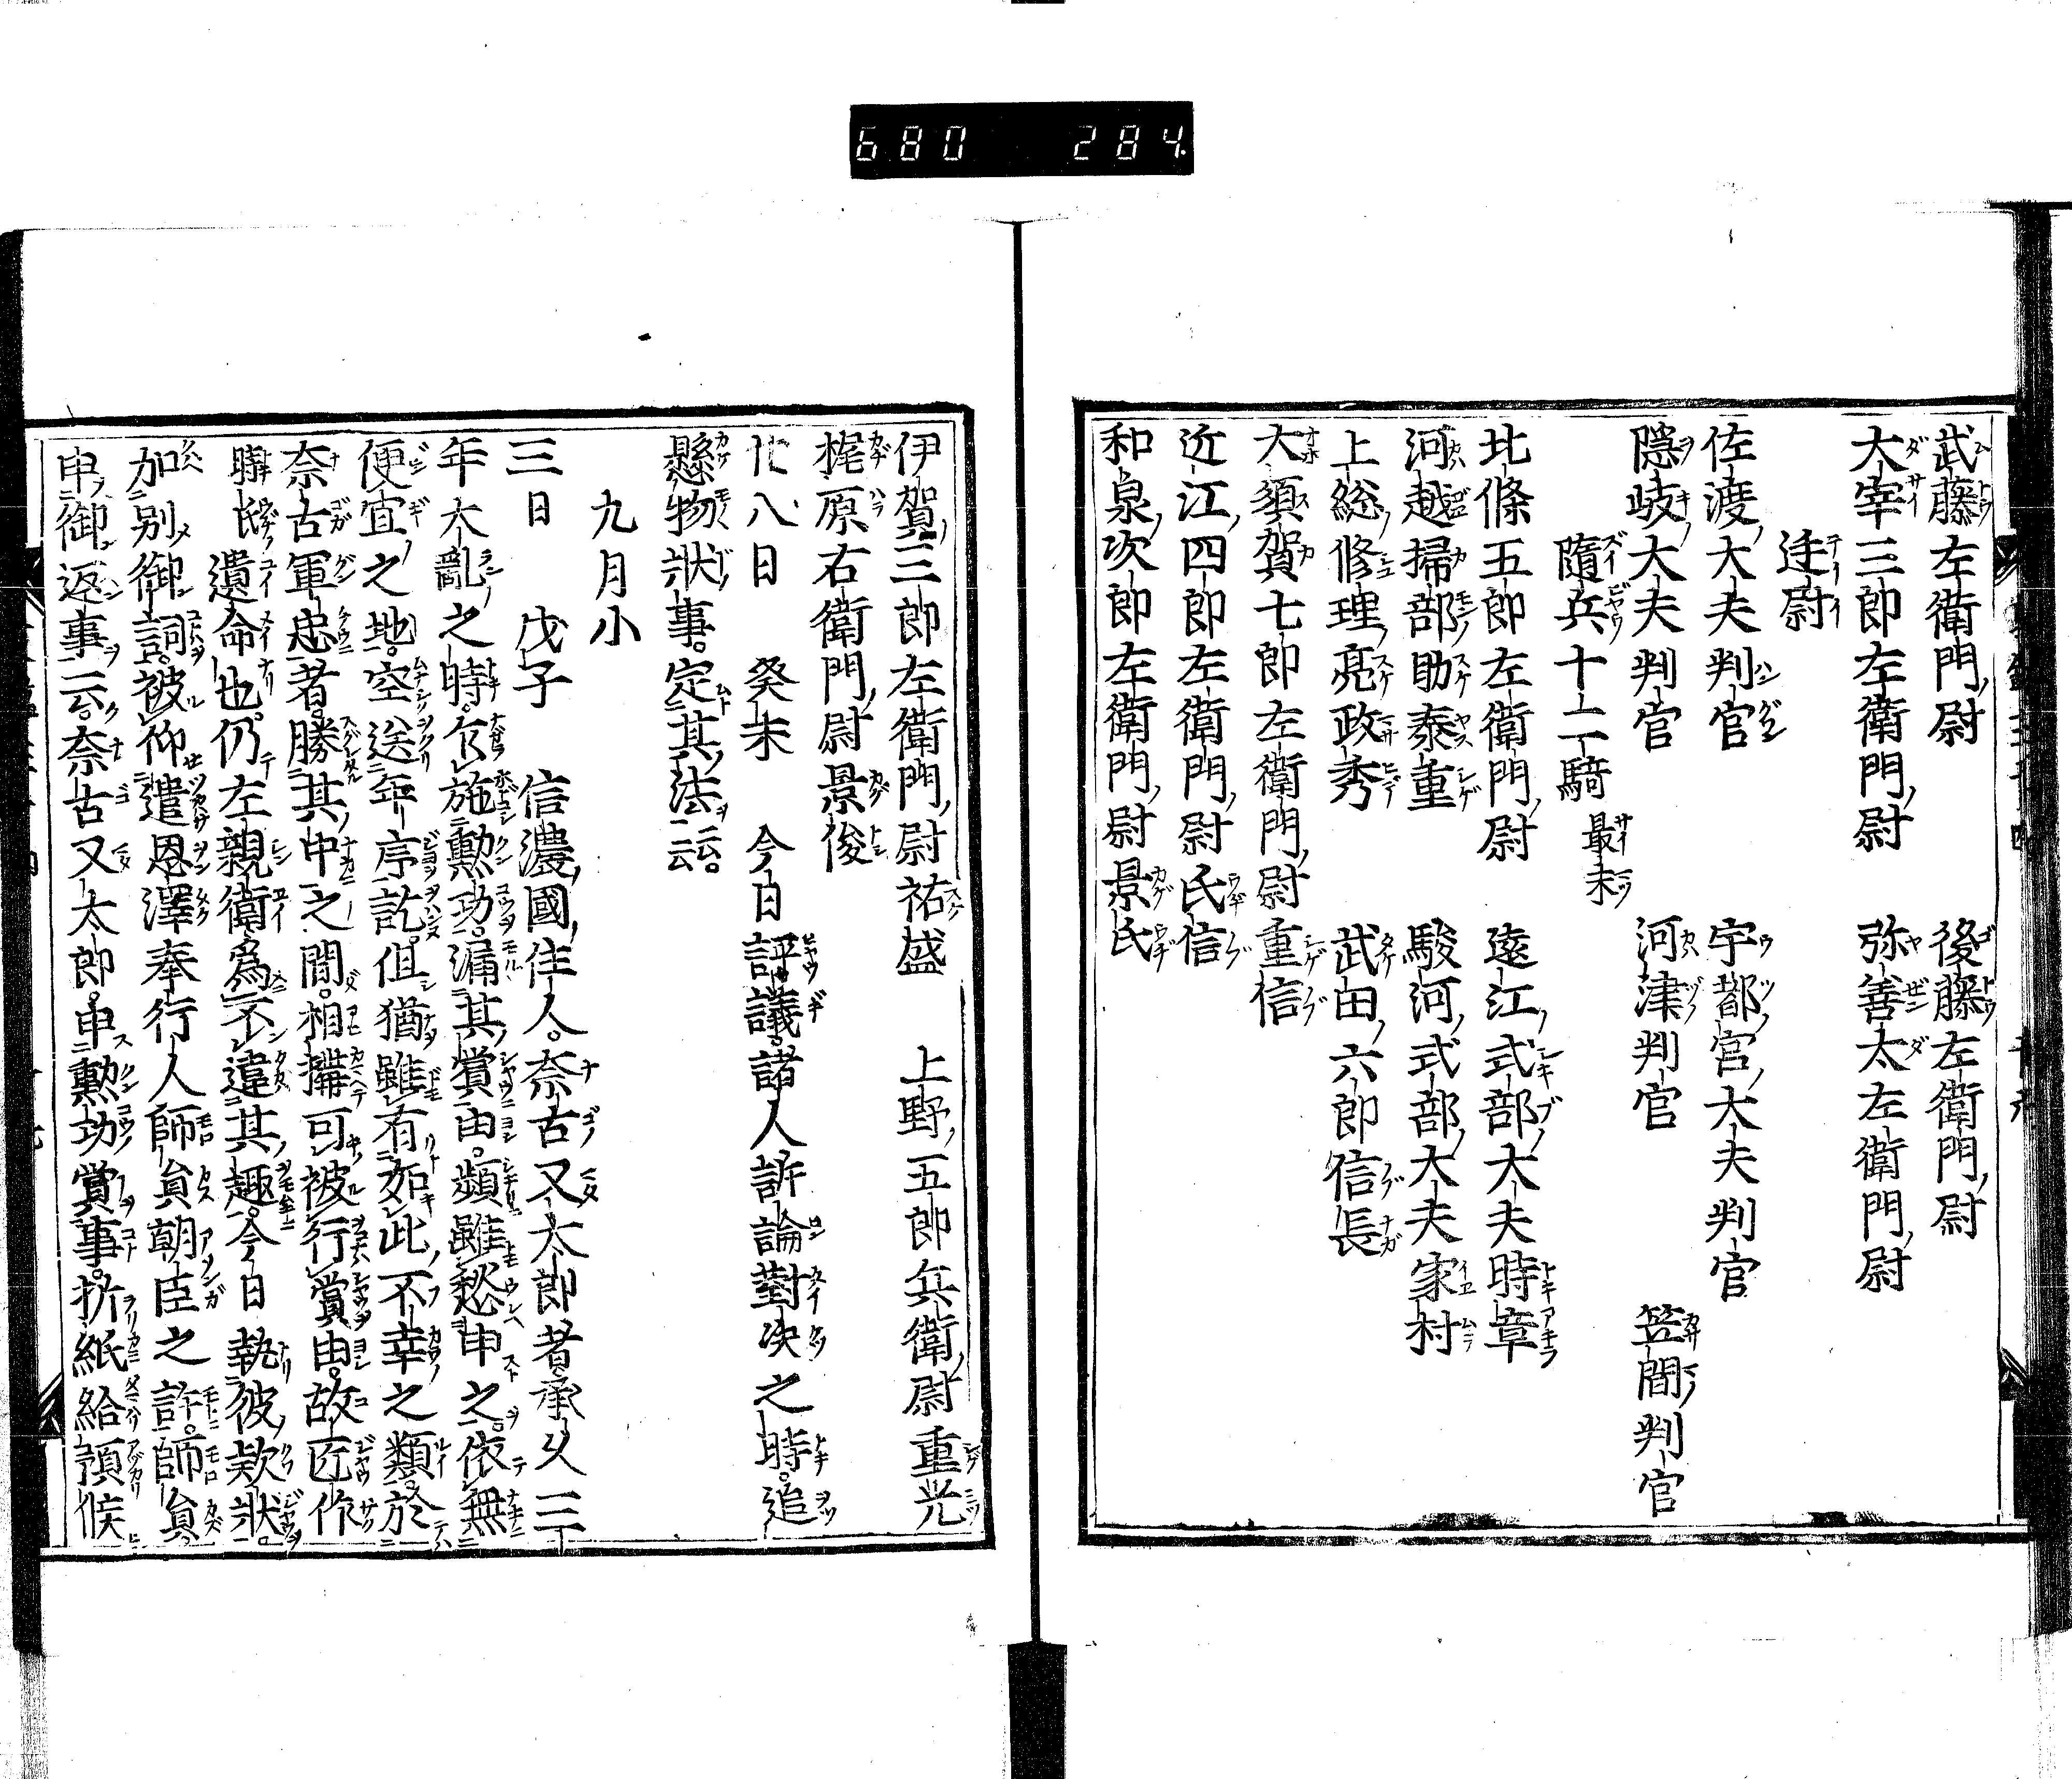 680 284
武藤左衛門尉 後藤左衛門尉
大宰三郎左衛門尉 弥善太左衛門尉
廷尉
佐渡大夫判官 宇都宮大夫判官
隠岐大夫判官 河津判官 笠間判官
隨兵十二騎 最末
北條五郎左衛門尉 遠江式部大夫時章
河越掃部助泰重 駿河式部大夫家村
上総修理亮政秀 武田六郎信長
大須賀七郎左衛門尉重信
近江四郎左衛門尉氏信
和泉次郎左衛門尉景氏
伊賀三郎左衛門尉祐盛 上野五郎兵衛尉重光
梶原右衛門尉景俊
廿八日 癸未 今日評議諸人訴論對決之時追
懸物状事定其法云云
九月小
三日 戊子 信濃國住人奈古又太郎者承久三
年大亂之時乍施勲功漏其賞由頻雖愁申之依無
便宜之地空送年序訖但猶雖有如此不幸之類於
奈古軍忠者勝其中之間相搆可被行賞由故匠作
時氏遺命也仍左親衛為不違其趣今日執彼款狀
加別御詞被仰遣恩澤奉行人師員朝臣之許師員
申御返事云奈古又太郎申勲功賞事折紙給預候